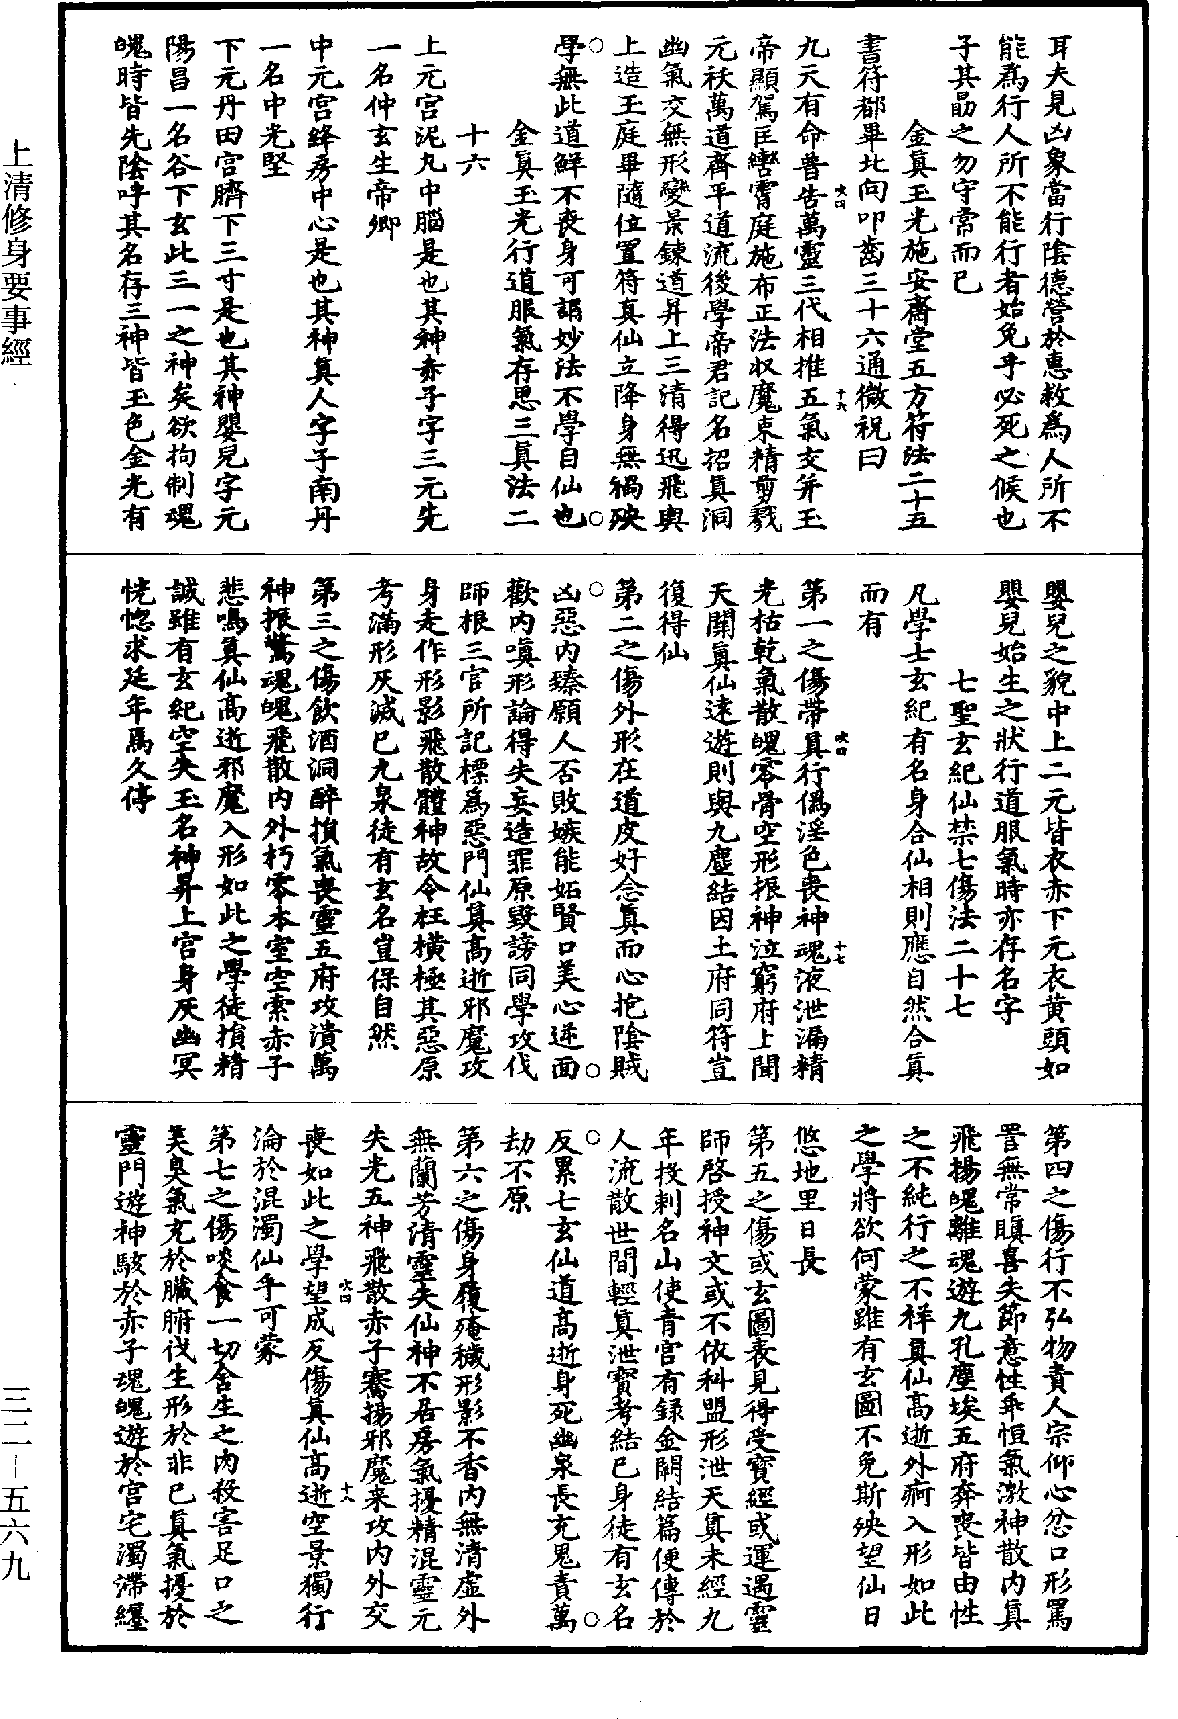 耳夫見凶象當行陰德營於惠救爲人所不
能爲行人所不能行者始免乎必死之候也
子其勗之勿守常而已
金真玉光施安齋堂五方符法二十五
書符都畢北向叩齒三十六通微祝曰
九天有命普告萬靈三代相推五氣交并玉
帝顯駕匡轡霄庭施布正法收魔束精剪戮
元祅萬道齊平道流後學帝君記名招真洞
幽氣交無形變景鍊道昇上三清得迅飛輿
上造玉庭畢隨位置符真仙立降身無禍殃
學無此道鮮不喪身可謂妙法不學自仙也
金真玉光行道服氣存思三真法二
十六
上元宮泥丸中腦是也其神赤子字三元先
一名仲玄生帝卿
中元宮絳房中心是也其神真人字子南丹
一名中光堅
下元丹田宮臍下三寸是也其神嬰兒字元
陽昌一名谷下玄此三一之神矣欲拘制魂
魄時皆先陰呼其名存三神皆玉色金光有
嬰兒之貌中上二元皆衣赤下元衣黃頭如
嬰兒始生之狀行道服氣時亦存名字
七聖玄紀仙禁七傷法二十七
凡學士玄紀有名身合仙相則應自然合真
而有
第一之傷帶真行僞淫色喪神魂液泄漏精
光枯乾氣散魄零骨空形振神泣窮府上聞
天關真仙遠遊則與九塵結因土府同符豈
復得仙
第二之傷外形在道皮好念真而心抱陰賊
凶惡內臻願人否敗嫉能妬賢口美心逆面
歡內嗔形論得失妄造罪原毀謗同學攻伐
師根三官所記標爲惡門仙真高逝邪魔攻
身走作形影飛散體神故令枉橫極其惡原
考滿形灰滅已九泉徒有玄名豈保自然
第三之傷飲酒洞醉損氣喪靈五府攻潰萬
神振驚魂魄飛散內外朽零本室空索赤子
悲鳴真仙高逝邪魔入形如此之學徒損精
誠雖有玄紀空失玉名神昇上宮身灰幽冥
恍惚求延年焉久停
第四之傷行不弘物責人宗仰心忿口形罵
詈無常瞋喜失節意性乖恒氣激神散內真
飛揚魄離魂遊九孔塵埃五府奔喪皆由性
之不純行之不祥真仙高逝外痾入形如此
之學將欲何蒙雖有玄圖不免斯殃望仙日
悠地里日長
第五之傷或玄圖表見得受寶經或運遇靈
師啓授神文或不依科盟形泄天真未經九
年投刺名山使青宮有錄金闕結篇便傳於
人流散世間輕真泄寶考結已身徒有玄名
反累七玄仙道高逝身死幽泉長充鬼責萬
劫不原
第六之傷身履殗穢形影不香內無清虛外
無蘭芳清靈失仙神不居房氣擾精混靈元
失光五神飛散赤子騫揚邪魔来攻內外交
喪如此之學望成反傷真仙高逝空景獨行
淪於混濁仙乎可蒙
第七之傷啖食一切含生之肉殺害足口之
美臭氣充於臟腑伐生形於非已真氣擾於
靈門遊神駭於赤子魂魄遊於宮宅濁滯纏
上清修身要事經
三二—五六九